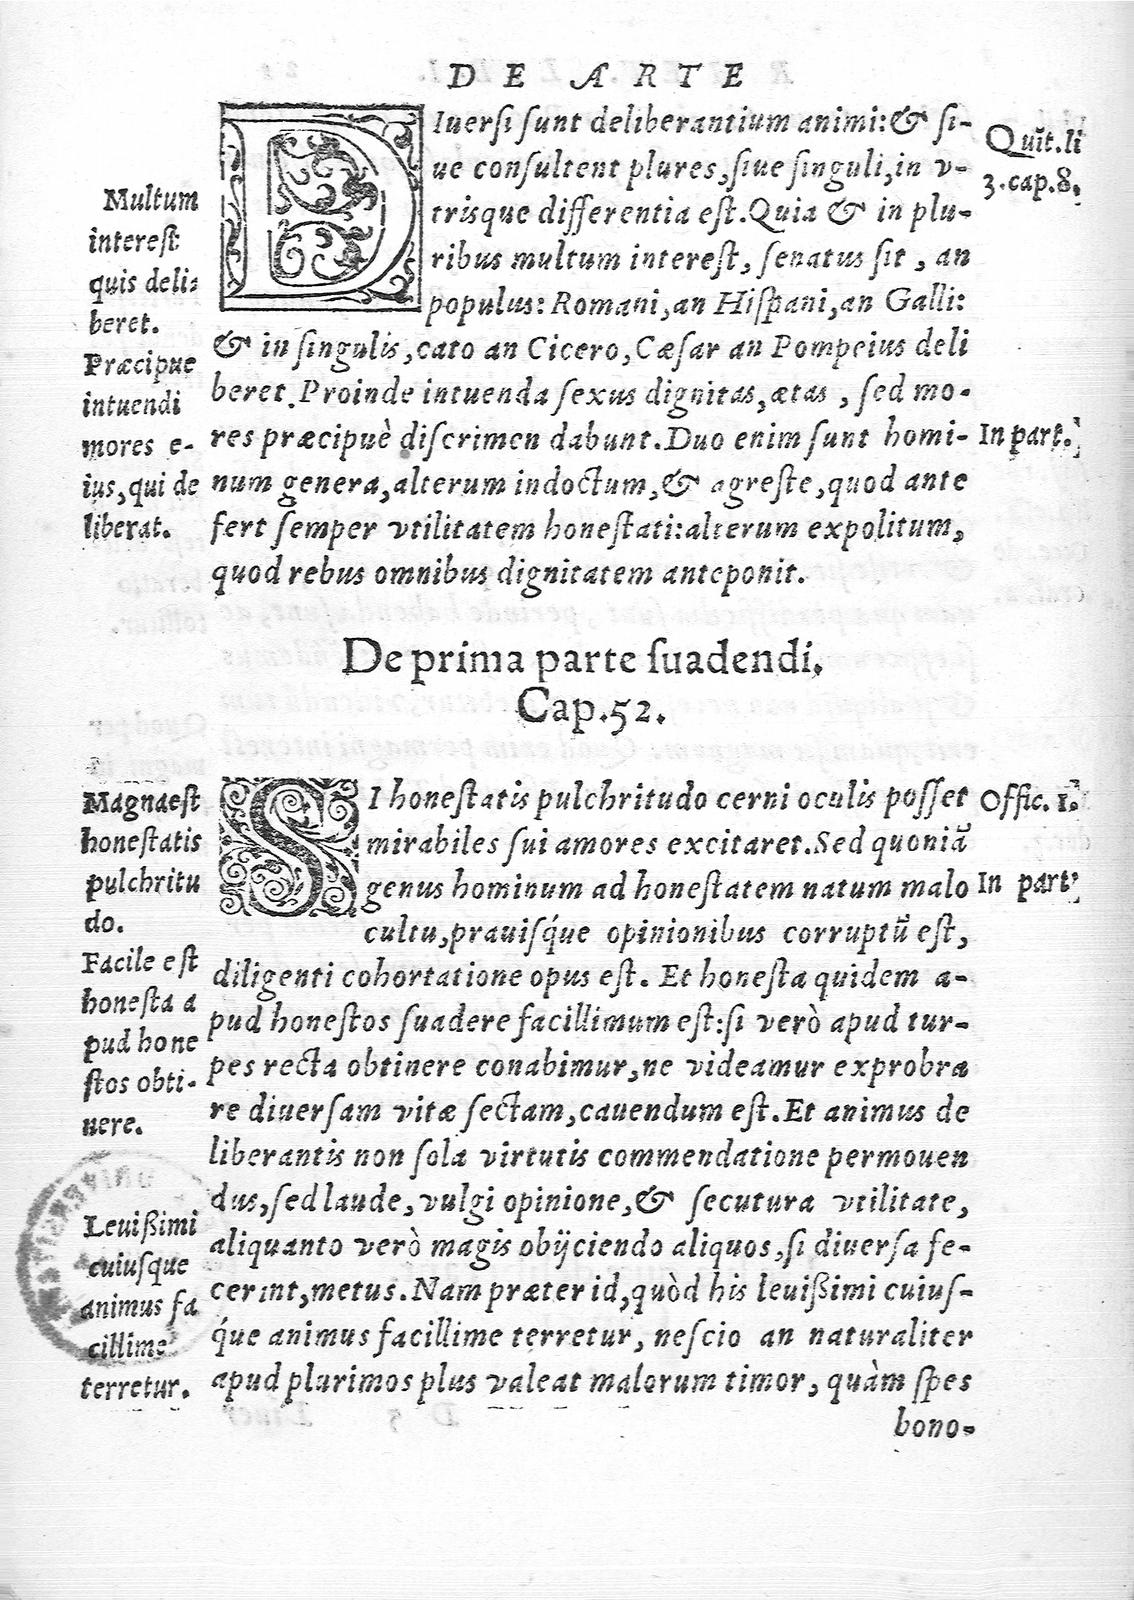 DE ARTE
DIuerſi ſunt deliberantium animi:& ſi-
ue conſultent plures,ſiue ſinguli,in v-
trisque differentia eſt.Quia & in plu-
ribus multum intereſt, ſenatus ſit , an
populus: Romani,an Hiſpani,an Galli:
& in ſingulis,cato an Cicero,Cæſar an Pompeius deli
beret.Proinde intuenda ſexus dignitas,ætas , ſed mo-
res præcipuè diſcrimen dabunt.Duo enim ſunt homi-
num genera,alterum indoctum,& agreſte,quod ante
fert ſemper vtilitatem honeſtati:alterum expolitum,
quod rebus omnibus dignitatem anteponit.
Quĩt.li
3.cap.8.
In part.
Multum
intereſt
quis deli-
beret.
Præcipue
intuendi
mores e-
ius,qui de
liberat.
De prima parte ſuadendi.
Cap.52.
SI honeſtatis pulchritudo cerni oculis poſſet
mirabiles ſui amores excitaret.Sed quoniã
genus hominum ad honeſtatem natum malo
cultu,prauiſq́ue opinionibus corruptũ eſt,
diligenti cohortatione opus eſt. Et honeſta quidem a-
pud honeſtos ſuadere facillimum eſt:ſi verò apud tur-
pes recta obtinere conabimur,ne videamur exprobra
re diuerſam vitæ ſectam,cauendum eſt.Et animus de
liberantis non ſola virtutis commendatione permouen
dus,ſed laude, vulgi opinione,& ſecutura vtilitate,
aliquanto verò magis obijciendo aliquos,ſi diuerſa fe-
cerint,metus.Nam præter id,quòd his leuißimi cuiuſ-
q́ue animus facillime terretur, neſcio an naturaliter
apud plurimos plus valeat malorum timor, quàm ſpes
bono-
Offic. 1.
In part.
Magna eſt
honeſtatis
pulchritu
do.
Facile eſt
honeſta a
pud hone
ſtos obti-
nere.
Leuißimi
cuiuſque
animus fa
cillime
terretur.